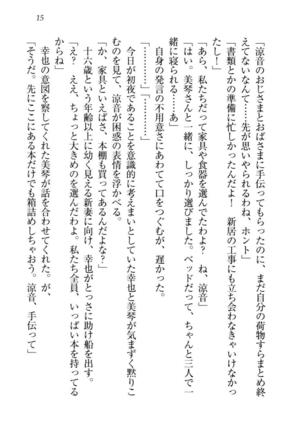 15
「涼音のおじさまとおばさまに手伝ってもらったのに、まだ自分の荷物すらまとめ終
えてないなんて……先が思いやられるわね、ホント」
「書類とかの準備に忙しかったんだよ！　新居の工事にも立ち会わなきゃいけなかっ
たし！」
「あら、私たちだって家具や食器を選んでたわよ？　ね、涼音」
「はい。美琴さんと一緒に、しっかり選びました。ベッドだって、ちゃんと三人で一
緒に寝られる……あ」
　自身の発言の不用意さにあわてて口をつぐむが、遅かった。
「…………」
「…………」
　今日が初夜であることを意識的に考えまいとしていた幸也と美琴が気まずく黙りこ
むのを見て、涼音が困惑の表情を浮かべる。
「か、家具といえばさ、本棚も買ってあるんだよな？」
　十六歳という年齢以上に幼く見える新妻に向け、幸也がとっさに助け船を出す。
「え？　ええ、ちょっと大きめのを選んだわよ。私たち全員、いっぱい本を持ってる
からね」
　幸也の意図を察してくれた美琴が話を合わせてくれた、が、
「そうだ。先にここにある本だけでも箱詰めしちゃおう。涼音、手伝って」